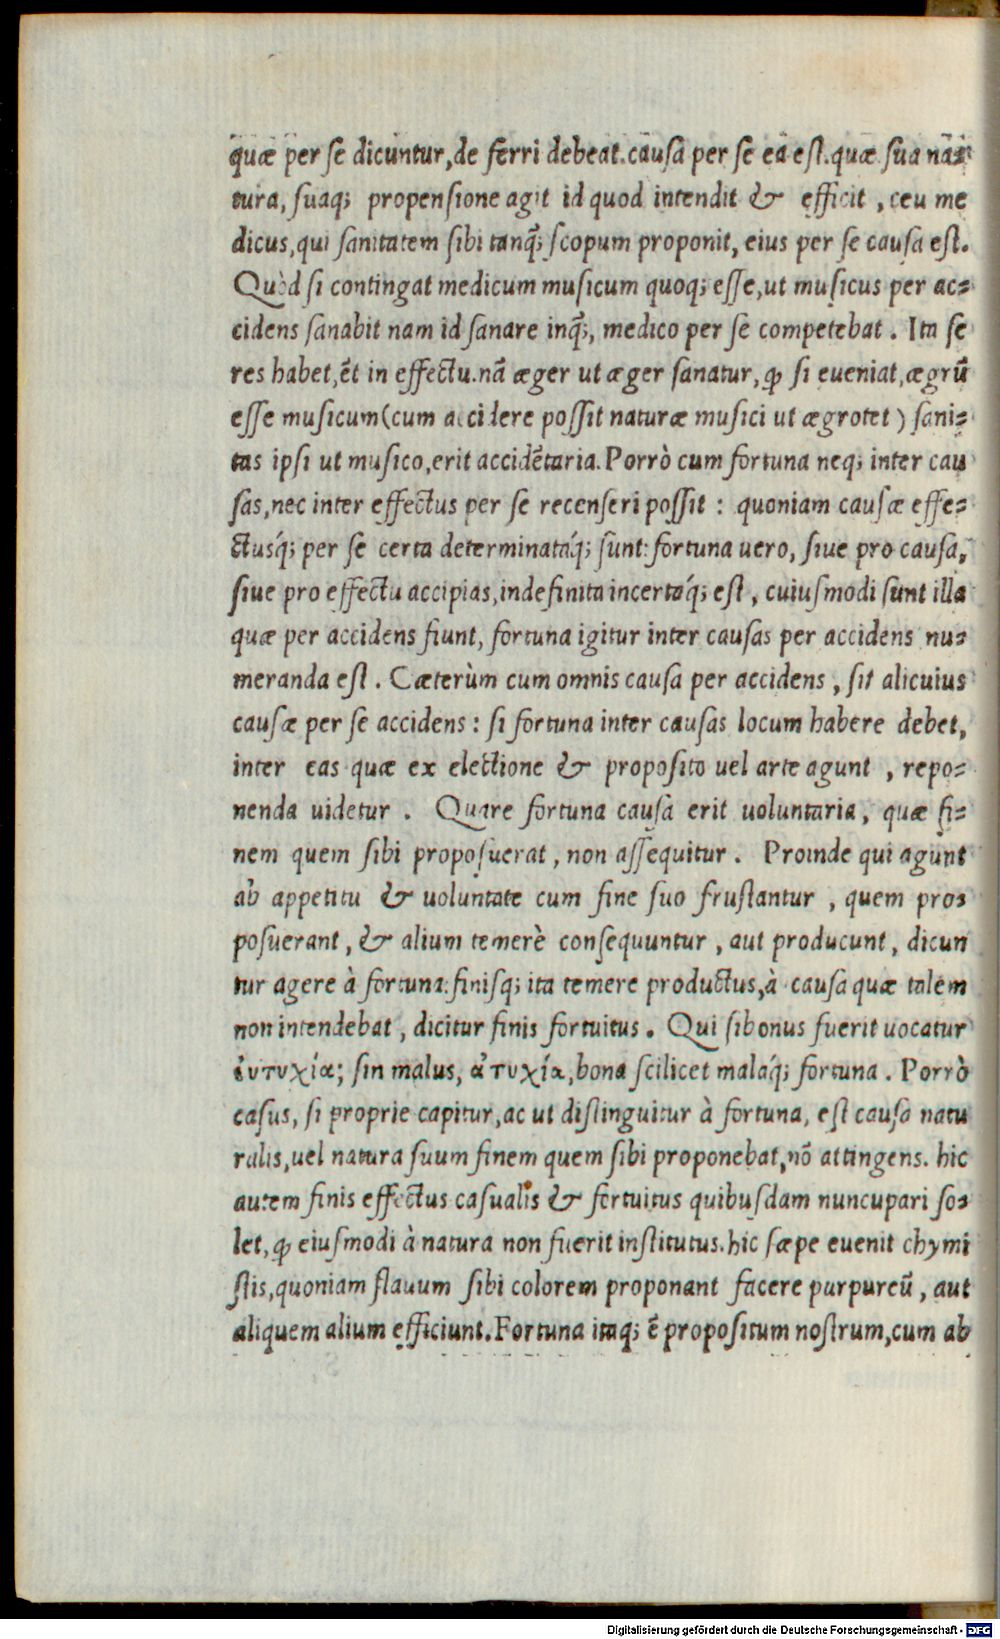 quæ per se dicuntur, de ferri debeat. causa per se ea est. quæ sua na⸗
tura, suaq; propensione agit id quod intendit & efficit, ceu me
dicus, qui sanitatem sibi tanq̃; scopum proponit, eius per se causa est.
Quòd si contingat medicum musicum quoq; esse, ut musicus per ac⸗
cidens sanabit nam id sanare inq̃;, medico per se competebat. Ita se
res habet, ẽt in effectu. nã æger ut æger sanatur, ꝙ si eueniat, ægrũ
esse musicum (cum accidere possit naturæ musici ut ægrotet) sani⸗
tas ipsi ut musico, erit accidẽtaria. Porrò cum fortuna neq; inter cau
sas, nec inter effectus per se recenseri possit : quoniam causæ effe⸗
ctusq́; per se certa determinataq́; sunt: fortuna uero, siue pro causa,
siue pro effectu accipias, indefinita incertaq́; est, cuiusmodi sunt illa
quæ per accidens fiunt, fortuna igitur inter causas per accidens nu⸗
meranda est. Cæterùm cum omnis causa per accidens, sit alicuius
causæ per se accidens : si fortuna inter causas locum habere debet,
inter eas quæ ex electione & proposito uel arte agunt, repo⸗
nenda uidetur. Quare fortuna causa erit uoluntaria, quæ fi⸗
nem quem sibi proposuerat, non assequitur. Proinde qui agunt
ab appetitu & uoluntate cum fine suo frustantur, quem pro⸗
posuerant, & alium temerè consequuntur, aut producunt, dicun
tur agere à fortuna: finisq; ita temere productus, à causa quæ talem
non intendebat, dicitur finis fortuitus. Qui si bonus fuerit uocatur
ἐυτυχία; sin malus, ἀτυχία, bona scilicet malaq́; fortuna. Porrò
casus, si proprie capitur, ac ut distinguitur à fortuna, est causa natu
ralis, uel natura suum finem quem sibi proponebat, nõ attingens. hic
autem finis effectus casualis & fortuitus quibusdam nuncupari so⸗
let, ꝙ eiusmodi à natura non fuerit institutus. hic sæpe euenit chymi
stis, quoniam flauum sibi colorem proponant facere purpureũ, aut
aliquem alium efficiunt. Fortuna itaq; ẽ propositum nostrum, cum ab
Digitalisierung gefördert durch die Deutsche Forschungsgemeinschaft - DFG